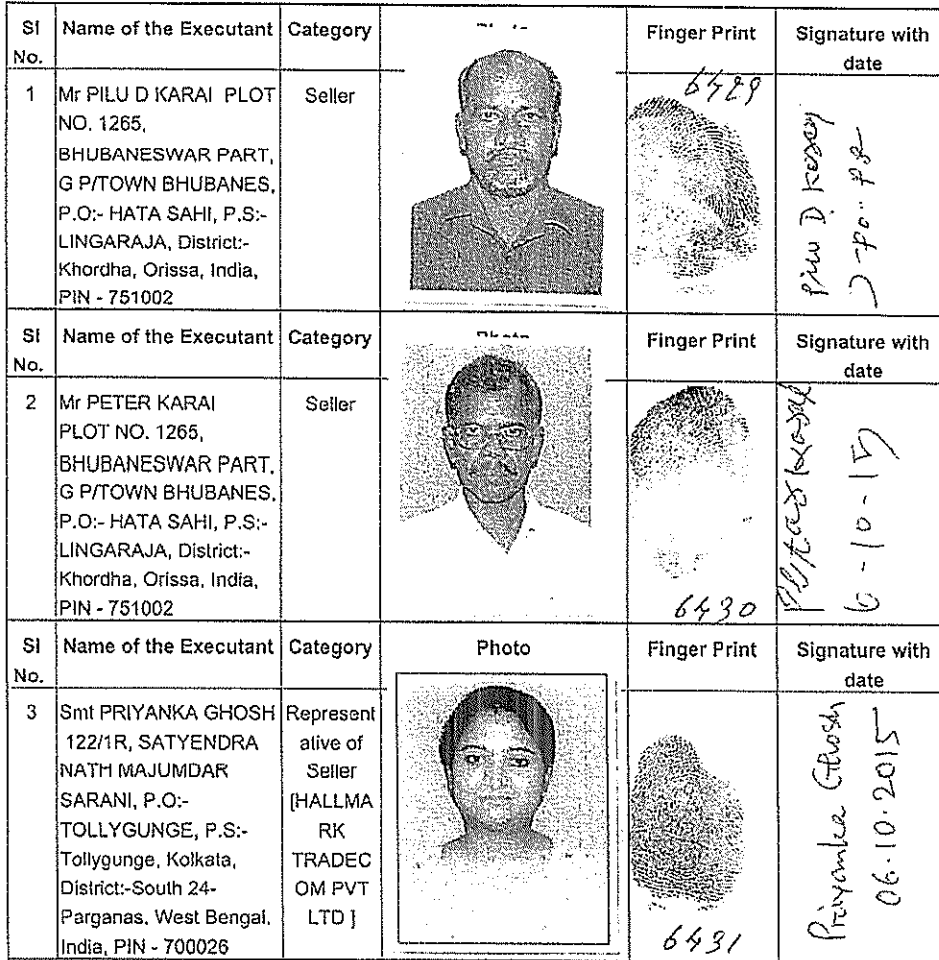 Sl No. Name of the Executant Category Finger Print Signature with date
1 Mr PILU D KARAI PLOT
NO. 1265,
BHUBANESWAR PART,
G P/TOWN BHUBANES,
P.O:- HATA SAHI, P.S:-
LINGARAJA, District:-
Khordha, Orissa, India,
PIN - 751002
Seller
6429
Pilu D
Sl No. Name of the Executant Category Photo Finger Print Signature with date
2 Mr PETER KARAI
PLOT NO. 1265,
BHUBANESWAR PART,
G P/TOWN BHUBANES,
P.O:- HATA SAHI, P.S:-
LINGARAJA, District:-
Khordha, Orissa, India,
PIN - 751002
Seller
6430
6-10-15
Sl No. Name of the Executant Category Photo Finger Print Signature with date
3 Smt PRIYANKA GHOSH
122/1R, SATYENDRA
NATH MAJUMDAR
SARANI, P.O:-
TOLLYGUNGE, P.S:-
Tollygunge, Kolkata,
District:-South 24-
Parganas, West Bengal,
India, PIN - 700026
Represent
ative of
Seller
[HALLMA
RK
TRADEC
OM PVT
LTD ]
6431
Priyanka Ghosh
06.10.2015